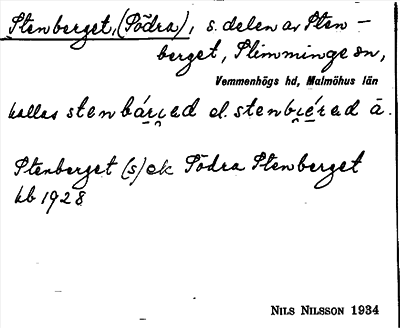 Stenberget, (Södra), s. delen av Sten-
berget, Slimminge sn,
Vemmenhögs hd, Malmöhus län
kallas stenbárjed el. stenbjéred ä.
Stenberget (s) ek Södra Stenberget
hb 1928
NILS NILSSON 1934